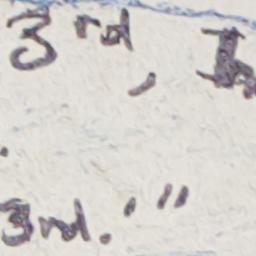 3rd,
.
3rd.'"